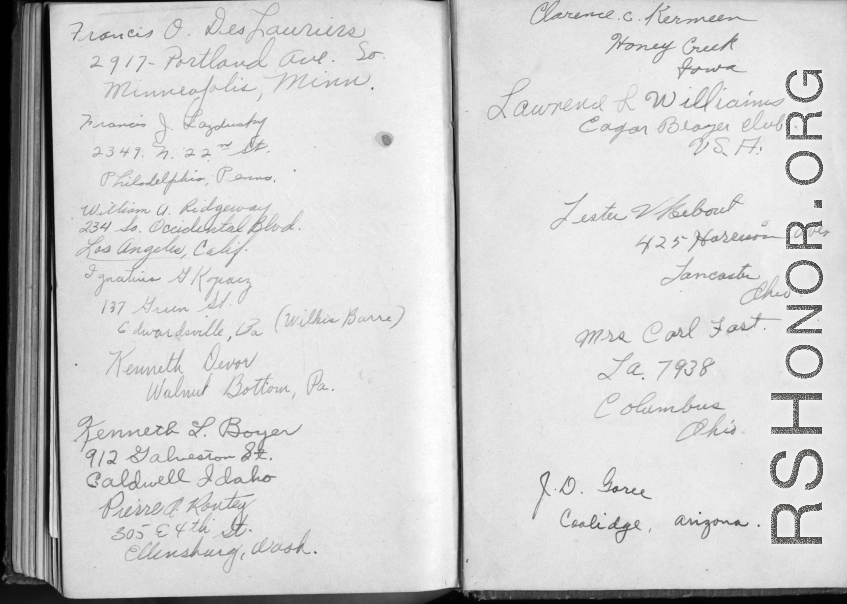 Francis O. DesLauriers
2917- Portland Ave. So.
Minneapolis, Minn.
Francis J. Lazdusky
2349 N. 22nd St.
Philadelphia, Penna.
William A. Ridgeway
234 So. Occidental Blvd.
Los Angeles, Calif.
Ignatius G Kopacz
137 Green St.
Edwardsville, Pa (Wilkes Barre)
Kenneth Devor
Walnut Bottom, Pa.
Kenneth L. Boyer
912 Galveston St.
Caldwell Idaho
Pierre A
305 E 4th St.
Ellensburg, Wash.
Clarence C. Kermeen
Honey Creek
Iowa
L Williams
Club
U.S.A.
Lester V
425 Harrison
Lancaster
Ohio
Mrs Carl Fast.
La. 7938
Columbus
Ohio.
J.D. Goree
Coolidge, Arizona.
RSHONOR.ORG